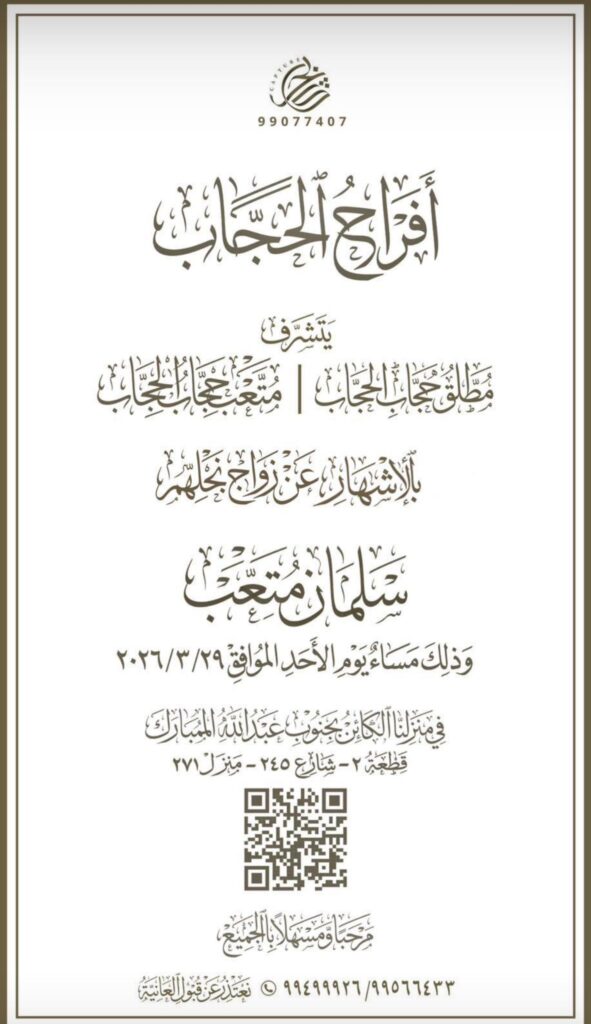 CAPTURE
99077407
أَفْرَاحُ ٱلْحَجَّابِ
يَتَشَرَّف
مُطْلَقْ حَجَّابْ الحَجَّاب | مُتْعَبْ حَجَّابْ الحَجَّاب
بِٱلْإِشْهَارِ عَنْ زَوَاجِ نَجْلِهِمْ
سَلمَان مُتعَب
وَذلِكَ مَسَاءُ يَوْمِ الأَحَدِ المُوَافِقْ ٢٠٢٦/٣/٢٩
في مَنزِلنَا ٱلْكَائِنْ بِجَنُوبِ عَبدُاللهْ المُبَارَك
قِطْعَةُ ٢ - شَارِع ٢٤٥ - مَنزِلْ ٢٧١
مَرْحَبًا وَمَسْهَلًا بِٱلْجَمِيع
٩٩٤٩٩٩٢٦/٩٩٥٦٦٤٣٣ نَعْتَذِرُ عَنْ قَبُولِ ٱلْعَانِيَّة